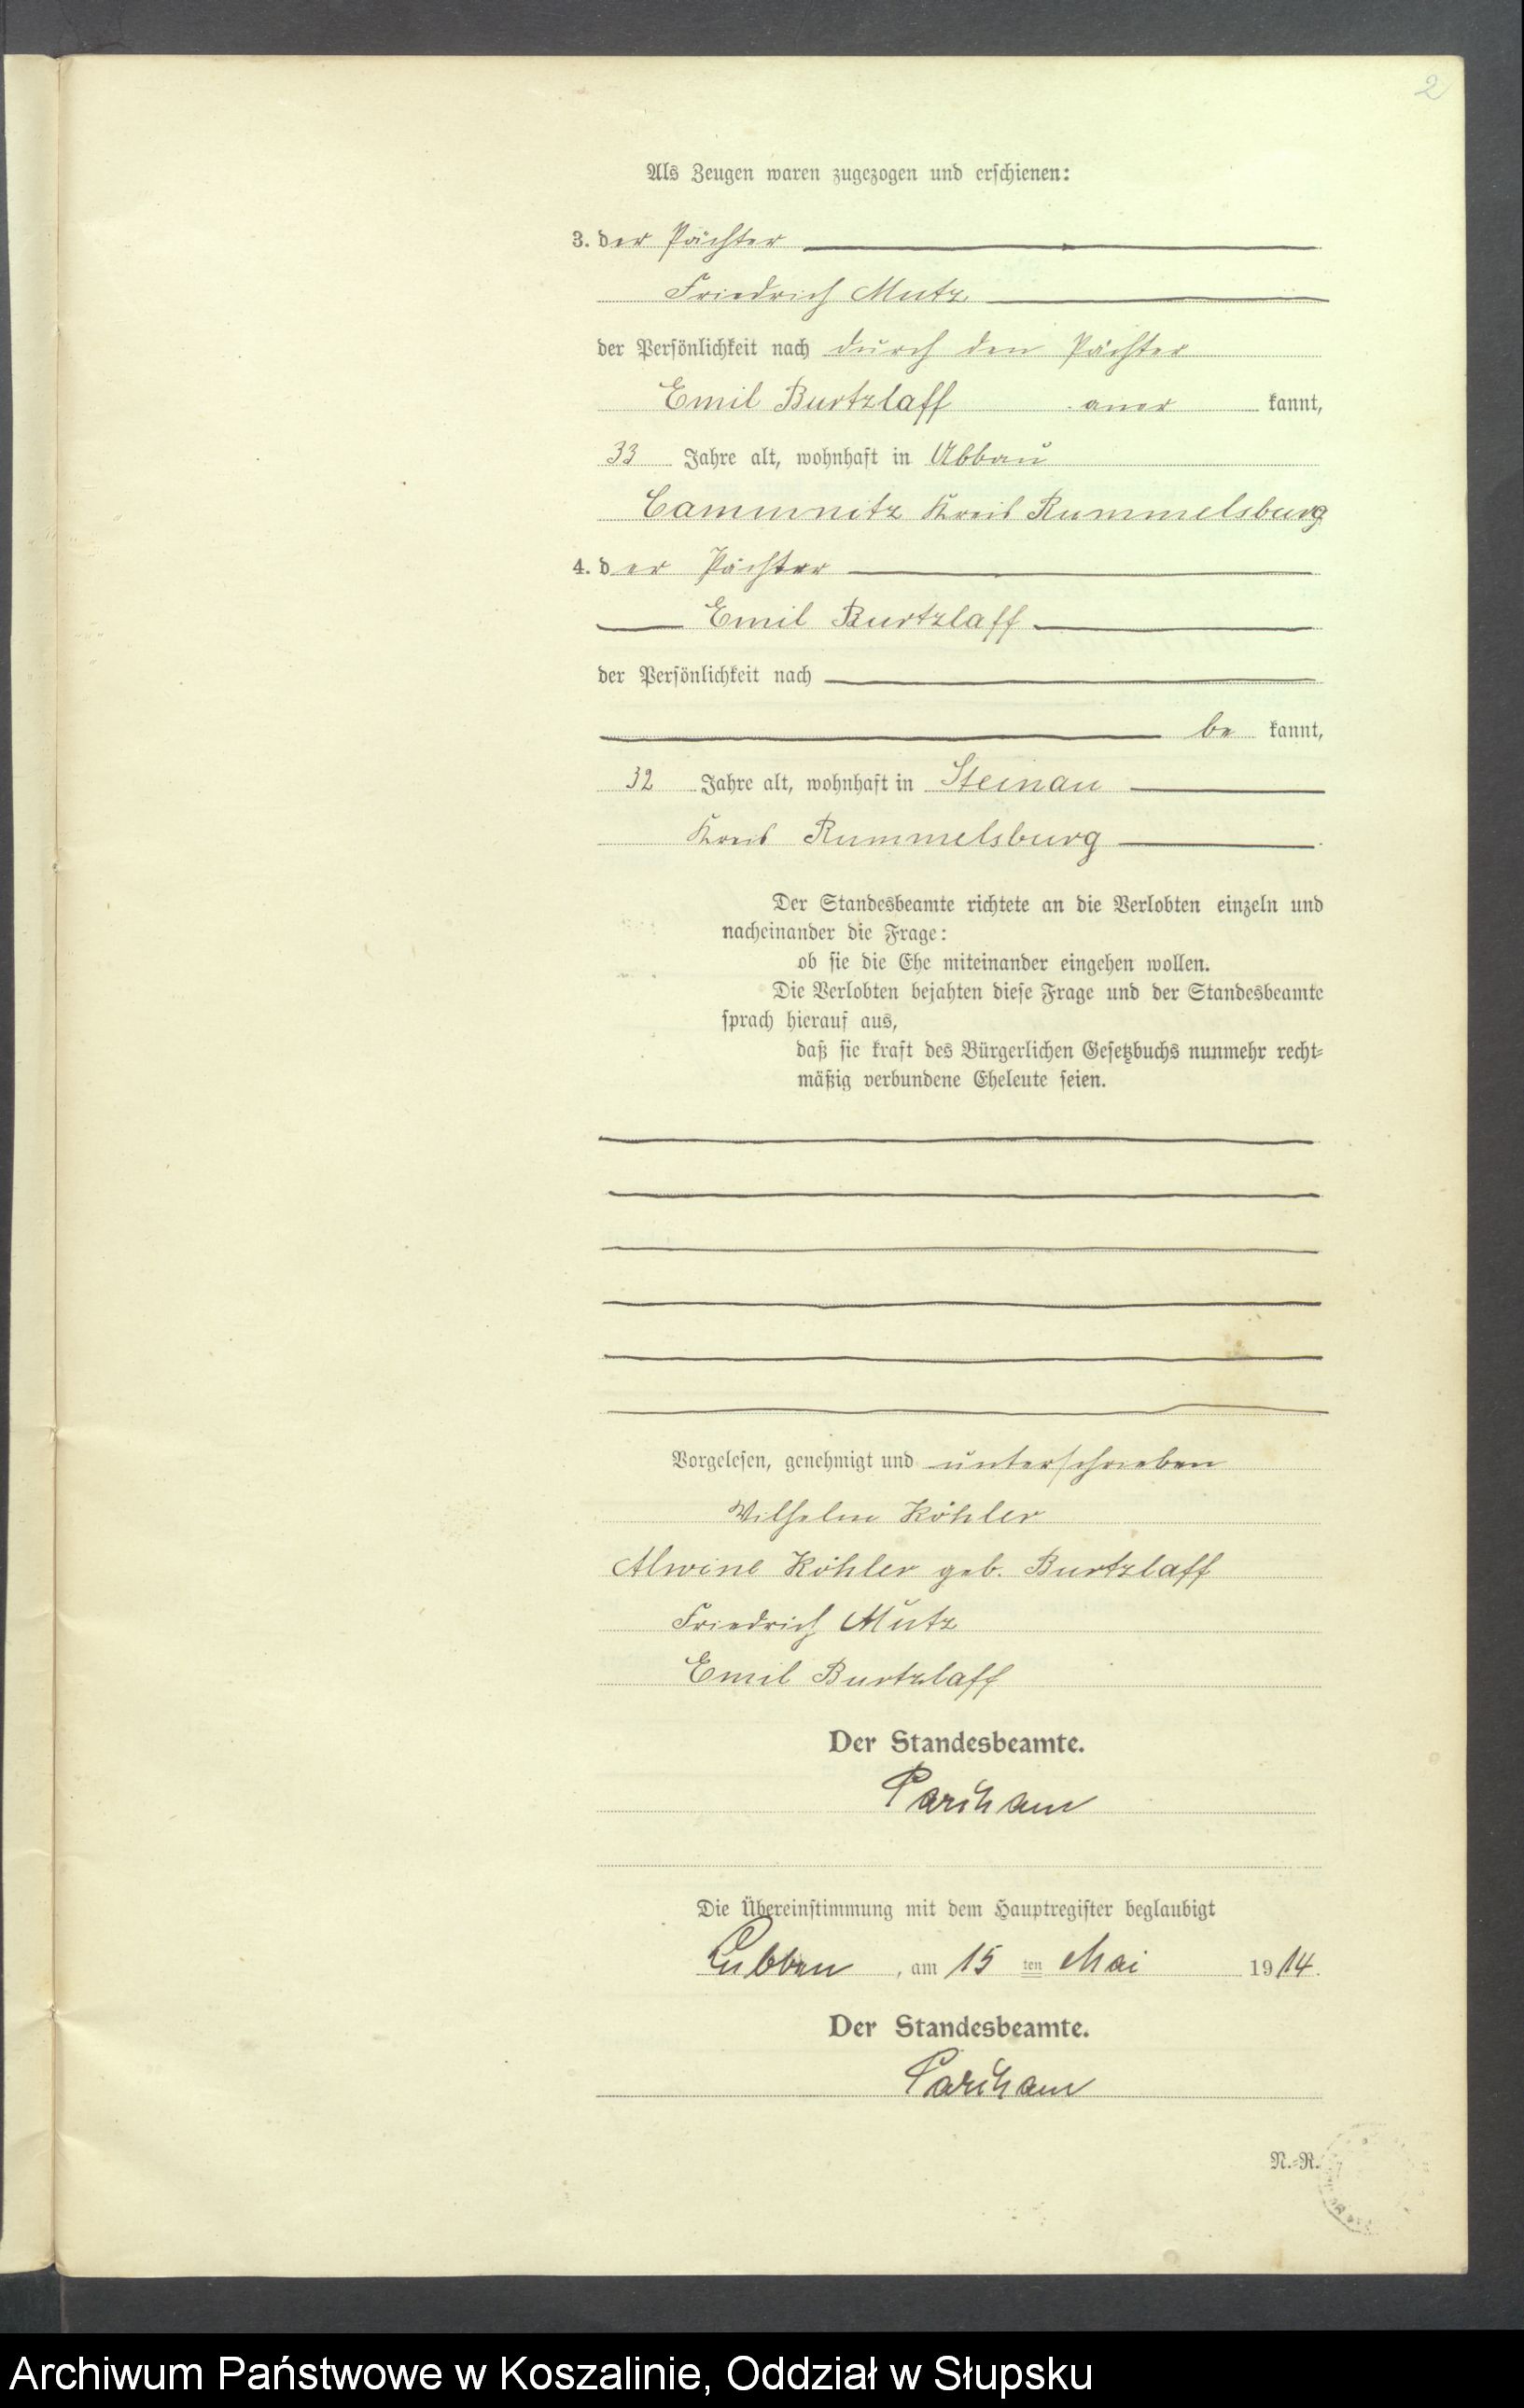 2
Als Zeugen waren zugezogen und erschienen:
3. der Pächter
Friedrich Mutz
der Persönlichkeit nach durch den Pächter
Emil Burtzlaff aner kannt,
33 Jahre alt, wohnhaft in Abbau
Cammnitz Kreis Rummelsburg
4. der Pächter
Emil Burtzlaff
der Persönlichkeit nach
be kannt,
32 Jahre alt, wohnhaft in Steinau
Kreis Rummelsburg
Der Standesbeamte richtete an die Verlobten einzeln und
nacheinander die Frage:
ob sie die Ehe miteinander eingehen wollen.
Die Verlobten bejahten diese Frage und der Standesbeamte
sprach hierauf aus,
daß sie kraft des Bürgerlichen Gesetzbuchs nunmehr recht-
mäßig verbundene Eheleute seien.
Vorgelesen, genehmigt und unterschrieben
Wilhelm Köhler
Alwine Köhler geb. Burtzlaff
Friedrich Mutz
Emil Burtzlaff
Der Standesbeamte.
Die Übereinstimmung mit dem Hauptregister beglaubigt
Lubben, am 15 ten Mai 1914.
Der Standesbeamte.
N.-R.
Archiwum Państwowe w Koszalinie, Oddział w Słupsku